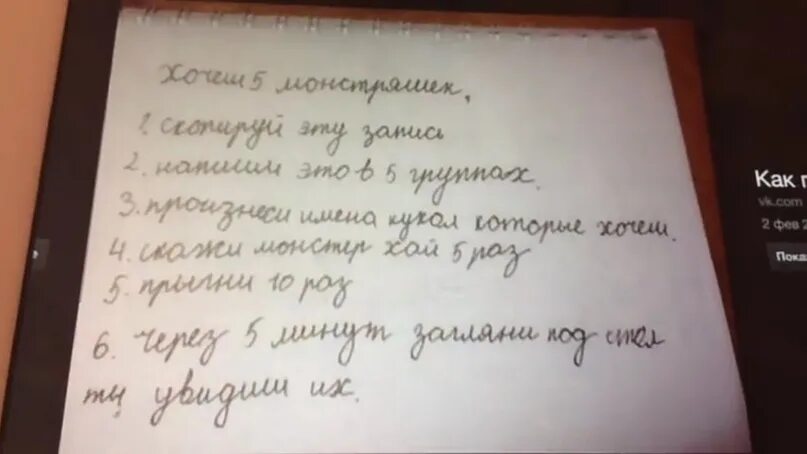 Хочеш 5 монстряшек,
1. скопируй эту запись
2. напиши это в 5 группах.
3. произнеси имена кукол которые хочеш.
4. скажи монстер хай 5 раз
5. прыгни 10 раз
6. Через 5 минут загляни под стол
ты увидиш их.
Как
vk.com
2 фев